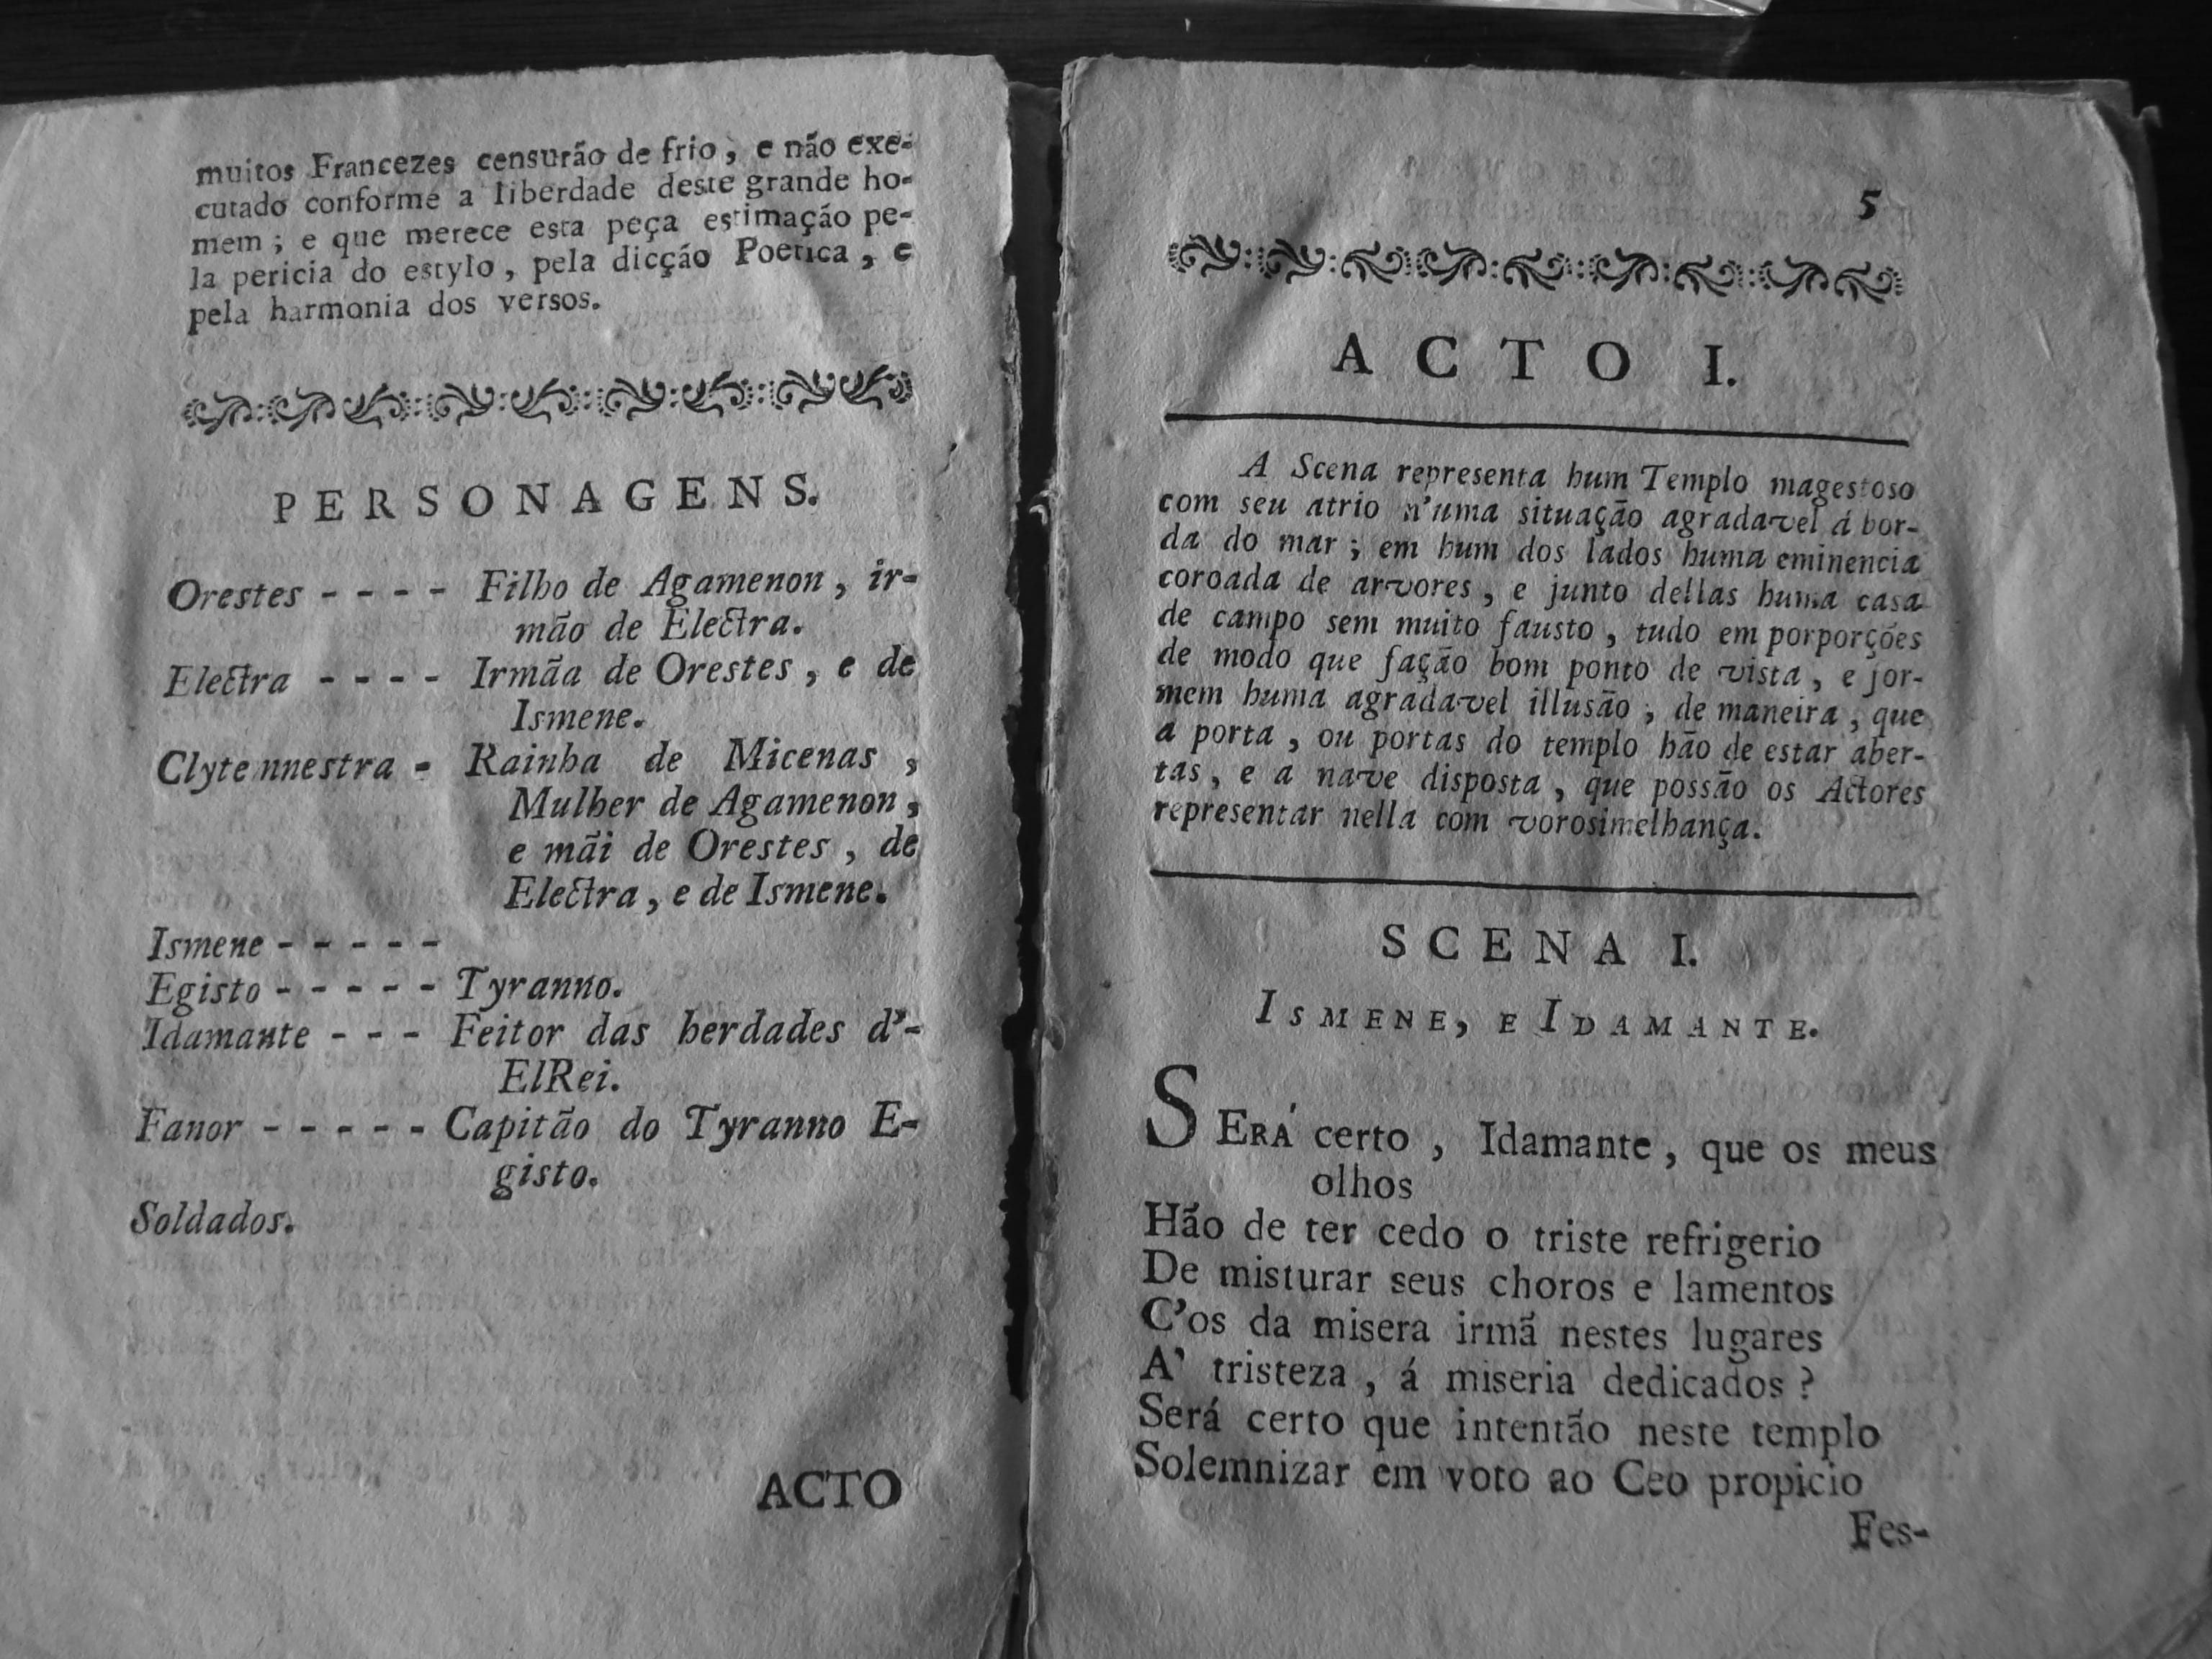 muitos Francezes censurão de frio, e não exe-
cutado conforme a liberdade deste grande ho-
mem; e que merece esta peça estimação pe-
la pericia do estylo, pela dicção Poetica, e
pela harmonia dos versos.
PERSONAGENS.
Orestes - - - - Filho de Agamenon, ir-
mão de Electra.
Electra - - - - Irmãa de Orestes, e de
Ismene.
Clytennestra - Rainha de Micenas,
Mulher de Agamenon,
e mãi de Orestes, de
Electra, e de Ismene.
Ismene - - - - -
Egisto - - - - - Tyranno.
Idamante - - - Feitor das herdades d'-
ElRei.
Fanor - - - - - Capitão do Tyranno E-
gisto.
Soldados.
ACTO
5
ACTO I.
A Scena representa hum Templo magestoso
com seu atrio n'uma situação agradavel á bor-
da do mar; em hum dos lados huma eminencia
coroada de arvores, e junto dellas huma casa
de campo sem muito fausto, tudo em porporções
de modo que fação bom ponto de vista, e for-
mem huma agradavel illusão, de maneira, que
a porta, ou portas do templo hão de estar aber-
tas, e a nave disposta, que possão os Actores
representar nella com vorosimelhança.
SCENA I.
ISMENE, E IDAMANTE.
SERÁ certo, Idamante, que os meus
olhos
Hão de ter cedo o triste refrigerio
De misturar seus choros e lamentos
C'os da misera irmã nestes lugares
A' tristeza, á miseria dedicados?
Será certo que intentão neste templo
Solemnizar em voto ao Ceo propicio
Fes-